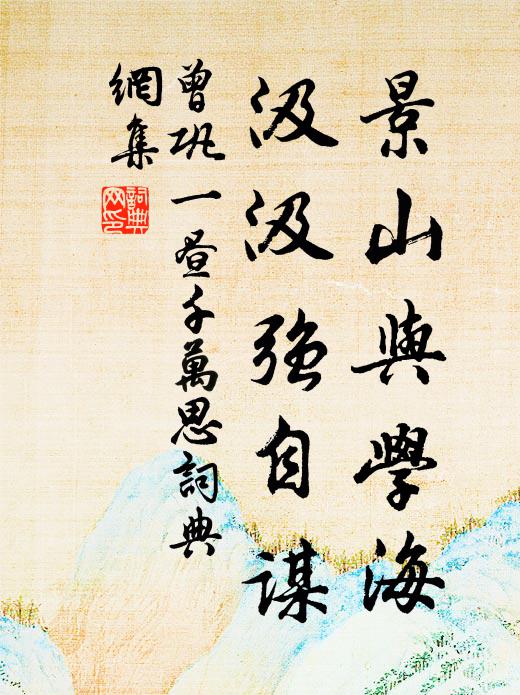 景山與學海
汲汲強自謀
曾巩一昼千萬思詞典
網集
詞典
网印